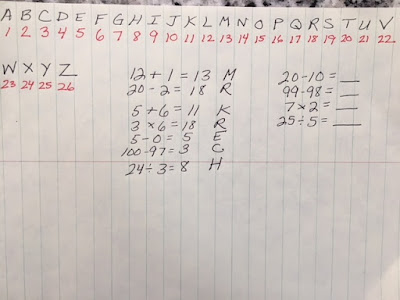 A B C D E F G H I J K L M N O P Q R S T U V
1 2 3 4 5 6 7 8 9 10 11 12 13 14 15 16 17 18 19 20 21 22
W X Y Z
23 24 25 26
12 + 1 = 13 M
20 - 2 = 18 R
5 + 6 = 11 K
3 × 6 = 18 R
5 - 0 = 5 E
100 - 97 = 3 C
24 ÷ 3 = 8 H
20 - 10 = __
99 - 98 = __
7 × 2 = __
25 ÷ 5 = __